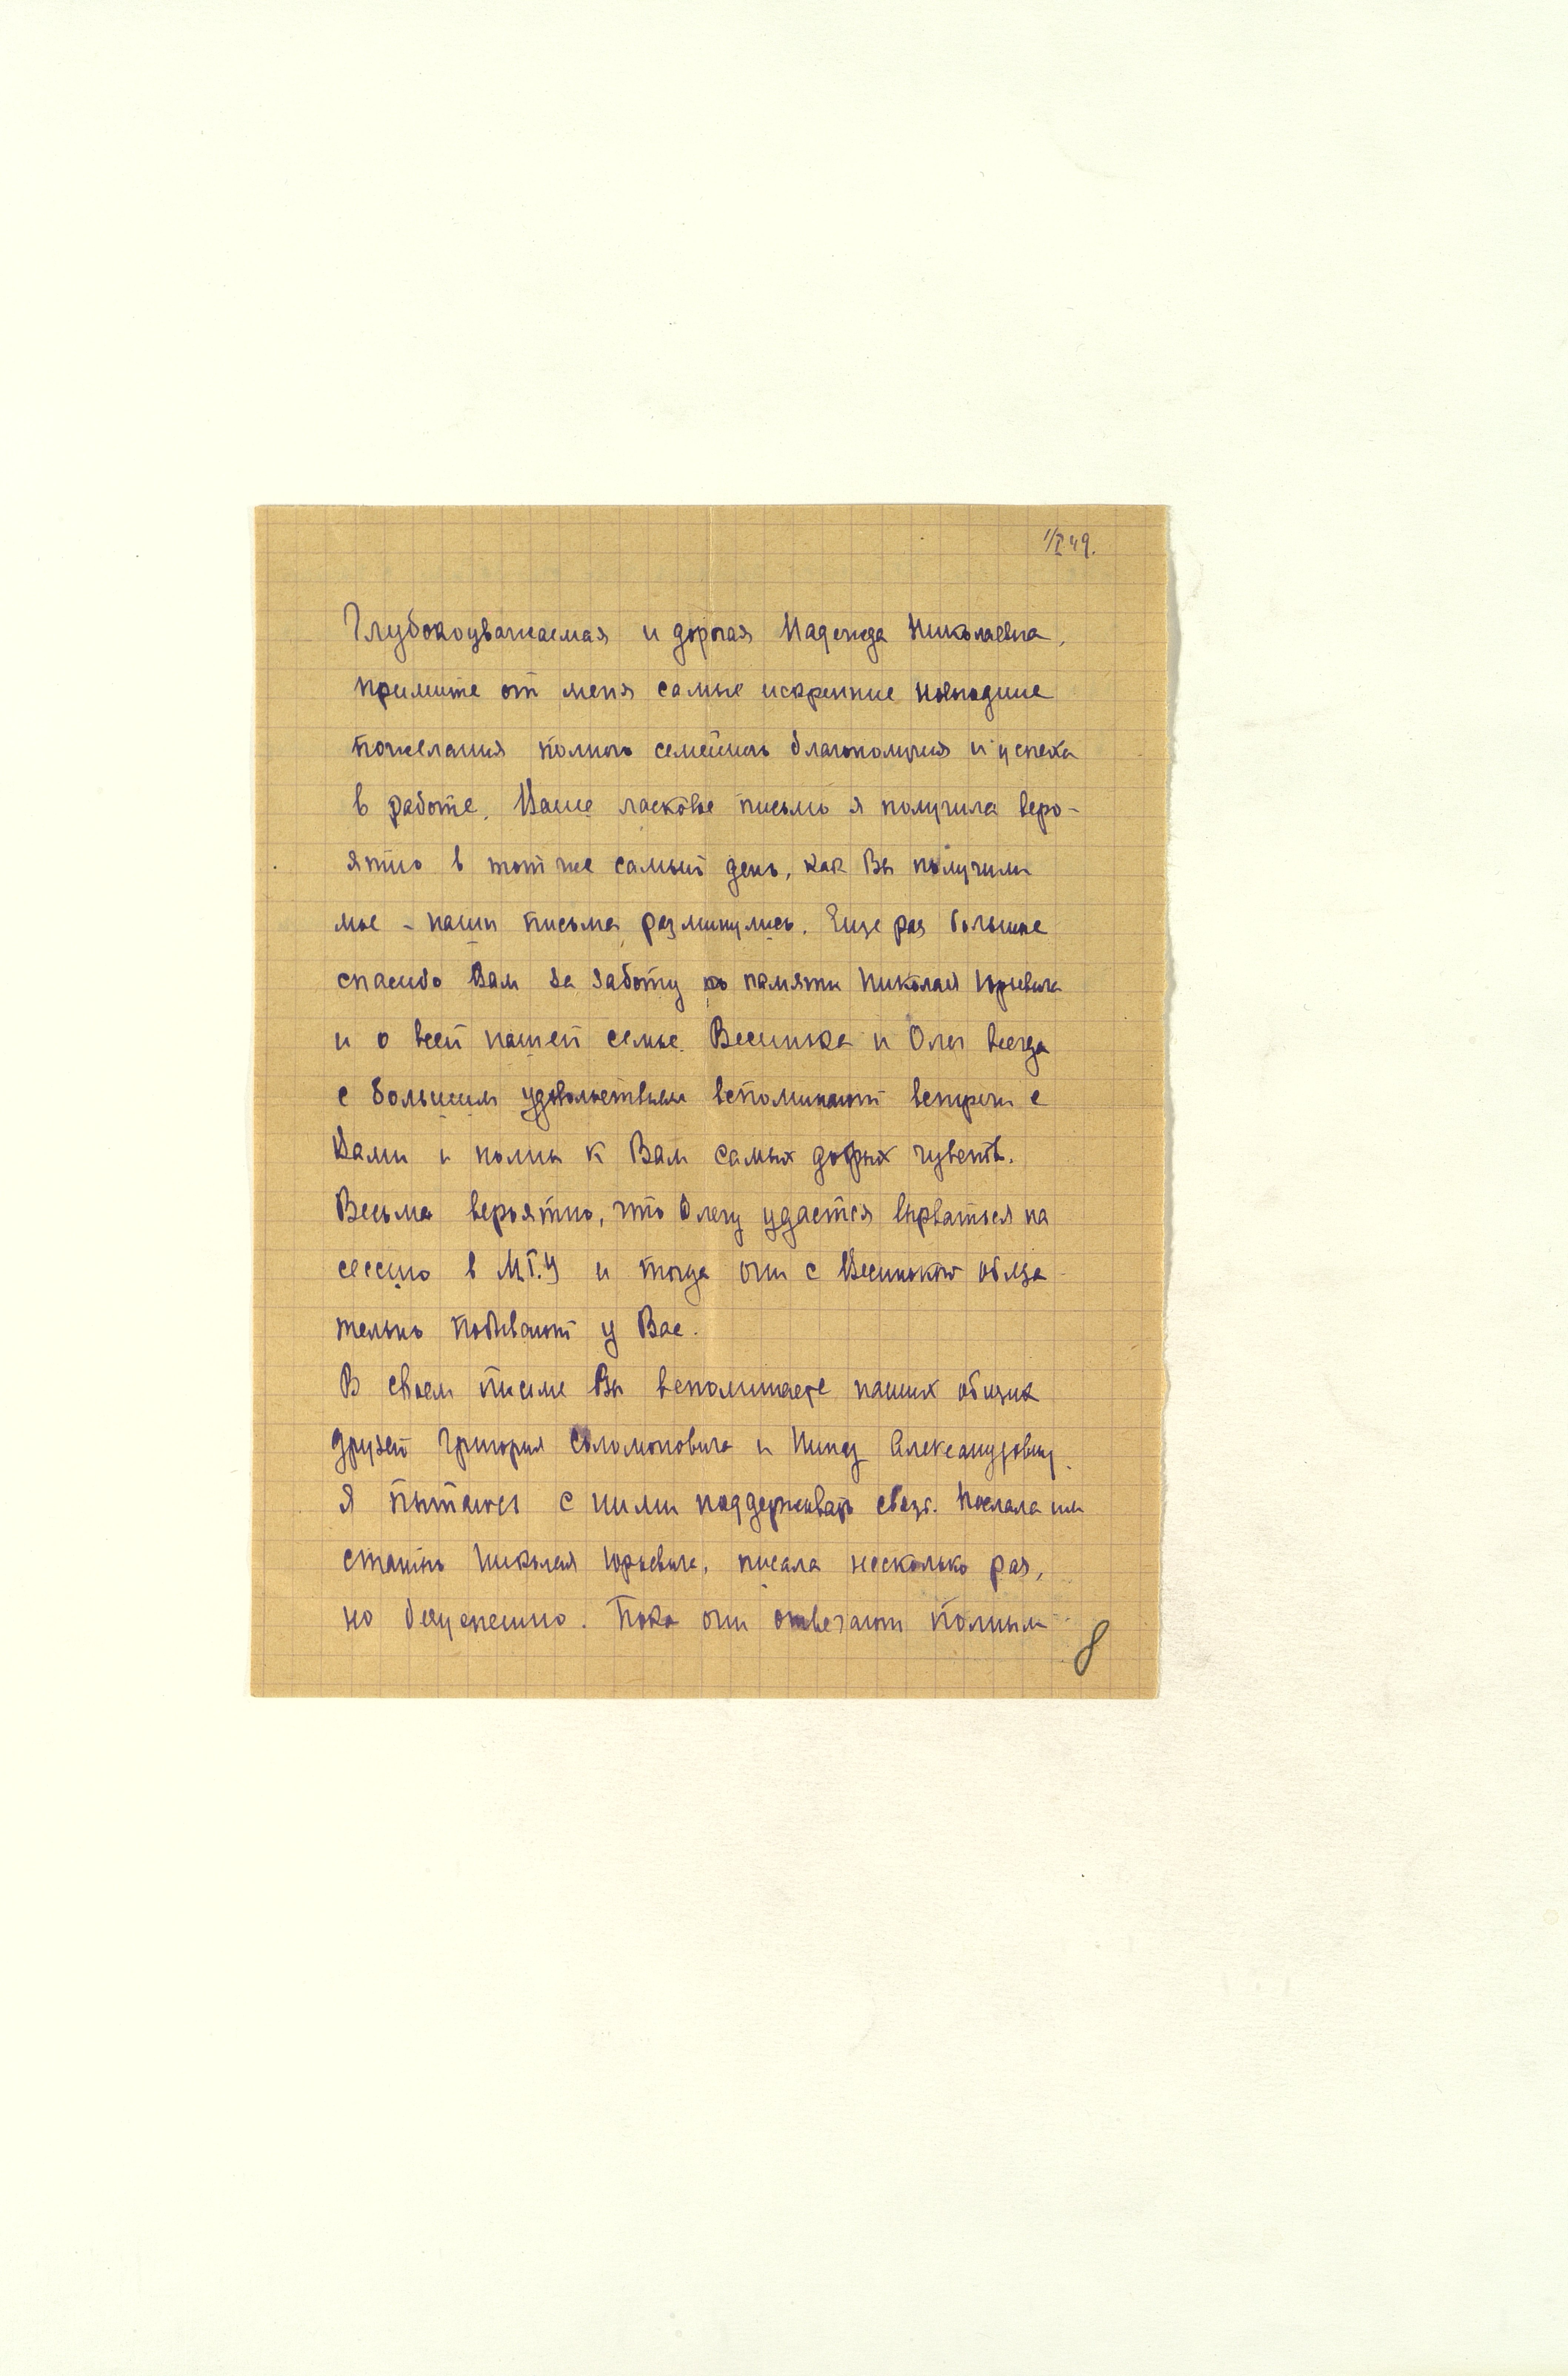 1/I 49.
Глубокоуважаемая и дорогая Надежда Николаевна,
примите от меня самые искренние новогодние
пожелания полного семейного благополучия и успеха
в работе. Ваше ласковое письмо я получила веро-
ятно в тот же самый день, как Вы получили
мое - наши письма разминулись. Еще раз большое
спасибо Вам за заботу о памяти Николая Юрьевича
и о всей нашей семье. Весинька и Олег всегда
с большим удовольствием вспоминают встречи с
Вами и полны к Вам самых добрых чувств.
Весьма вероятно, что Олегу удастся вырваться на
сессию в М.Г.У и тогда они с Весинькой обяза-
тельно побывают у Вас.
В своем письме Вы вспоминаете наших общих
друзей Григория Соломоновича и Нину Александровну.
Я пытаюсь с ними поддерживать связь. Послала им
статью Николая Юрьевича, писала несколько раз,
но безуспешно. Пока они отвечают полным
8